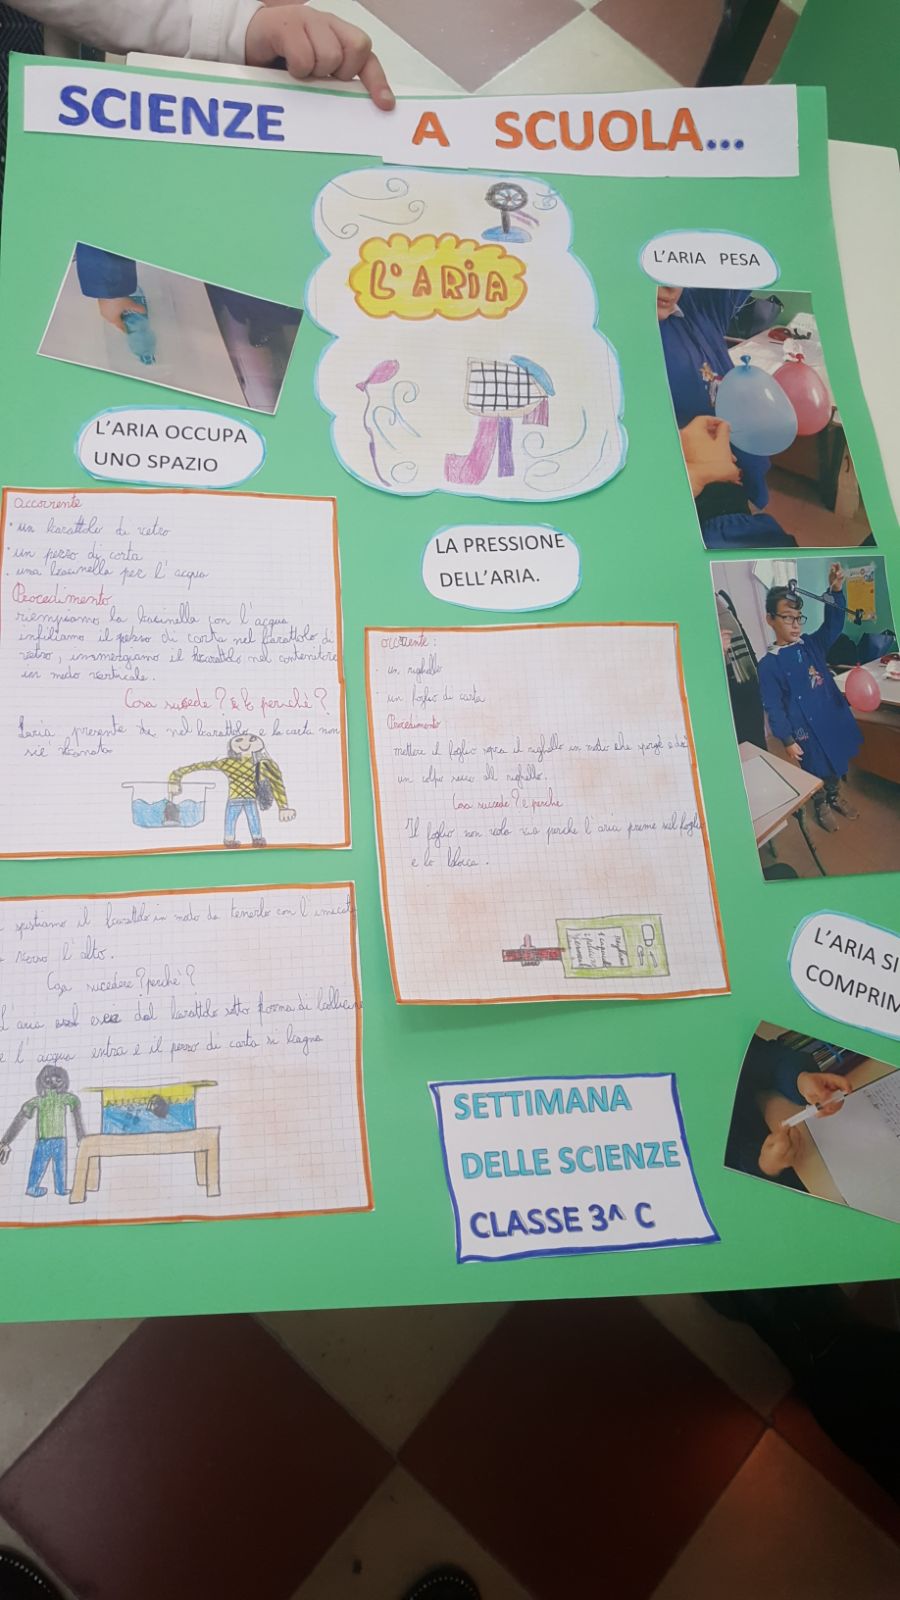 SCIENZE A SCUOLA...
L'ARIA
L'ARIA PESA
L'ARIA OCCUPA
UNO SPAZIO
occorrente
• un barattolo di vetro
• un pezzo di carta
• una bacinella per l'acqua
Procedimento
riempiamo la bacinella con l'acqua
infiliamo il pezzo di carta nel barattolo di
vetro, immergiamo il barattolo nel contenitore
in modo verticale.
Cosa succede? e perchè?
L'aria presente nel barattolo e la carta non
si è bagnata
spostiamo il barattolo in modo da tenerlo con l'
verso l'alto.
Cosa succedere? perchè?
L'aria esce dal barattolo sotto forma di bollicine
e l'acqua entra e il pezzo di carta si bagna
LA PRESSIONE
DELL'ARIA.
occorrente:
• un righello
• un foglio di carta
Procedimento
mettere il foglio sopra il righello in modo che sporge e dai
un colpo secco al righello.
Cosa succede? e perche
Il foglio non vola via perche l'aria preme sul foglio
e lo blocca.
L'ARIA SI
COMPRIM
SETTIMANA
DELLE SCIENZE
CLASSE 3^ C